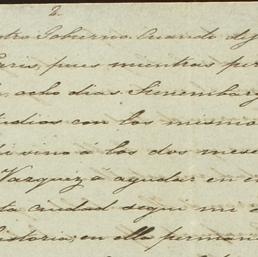 2
stro Gobierno. Cuando dej
Paris, pues mientras per
ocho dias. Sinembarg
tudios con los mismo
vino á los dos mese
Vazquez a ayudar en
ta ciudad seguí mi
istoria; en ella perman